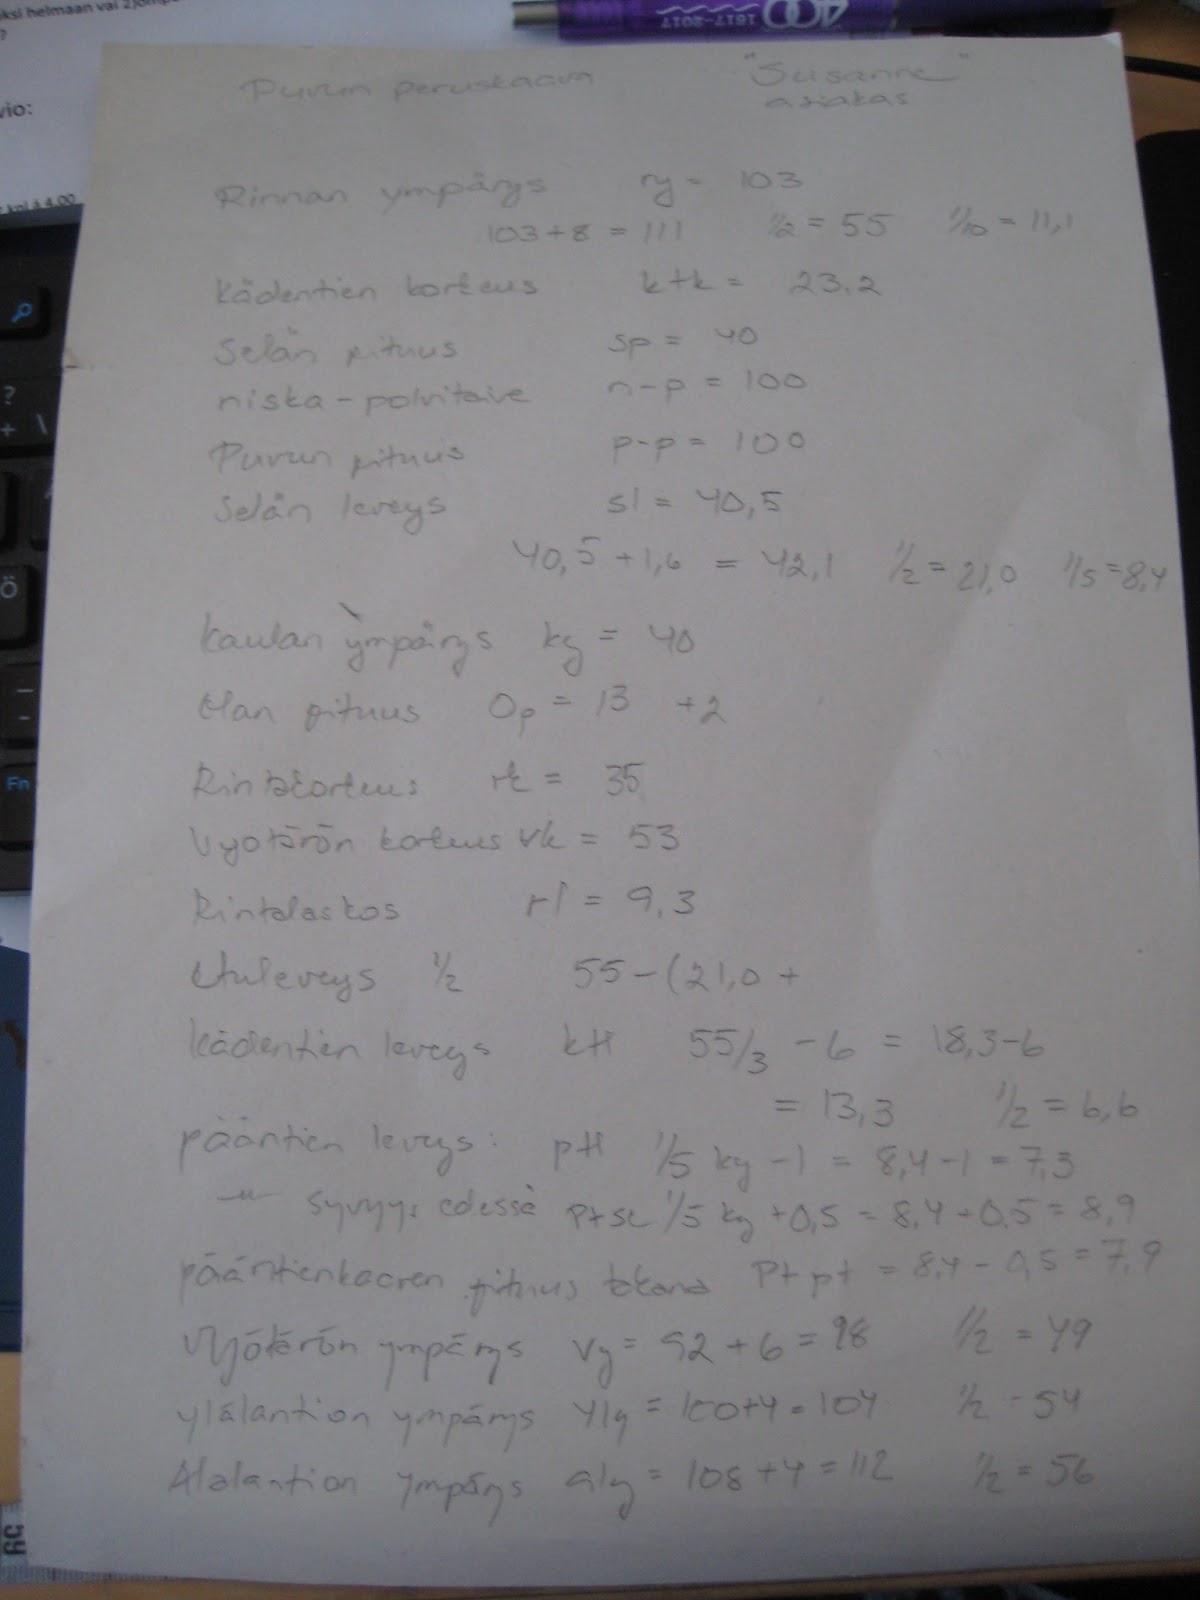 ksi helmaan vai 2jompi
?
vio:
kpl á 4,00
1617-2017 400
Puvun peruskaava "Susanne"
asiakas
Rinnan ympärys ry = 103
103+8 = 111 1/2 = 55 1/10 = 11,1
Kädentien korkeus ktk = 23.2
Selän pituus sp = 40
niska-polvitaive n-p = 100
Puvun pituus p-p = 100
Selän leveys sl = 40,5
40,5 +1,6 = 42,1 1/2 = 21,0 1/5 = 8,4
Kaulan ympärys ky = 40
Olan pituus Op = 13 +2
Rintakorkeus rk = 35
Vyötärön korkeus vk = 53
Rintalaskos rl = 9,3
Etuleveys 1/2 55-(21,0 +
Kädentien leveys ktl 55/3 - 6 = 18,3-6
= 13,3 1/2 = 6,6
pääntien leveys: ptl 1/5 ky -1 = 8,4-1 = 7,3
-"- syvyys edessä ptse 1/5 ky +0,5 = 8,4+0,5 = 8,9
pääntienkaaren pituus takana Ptpt = 8,4-0,5 = 7,9
Vyötärön ympärys vy = 92 + 6 = 98 1/2 = 49
ylälantion ympärys yly = 100+4 = 104 1/2 - 54
Alalantion ympärys aly = 108+4 = 112 1/2 = 56
?
+ \
Ö
-
-
Fn